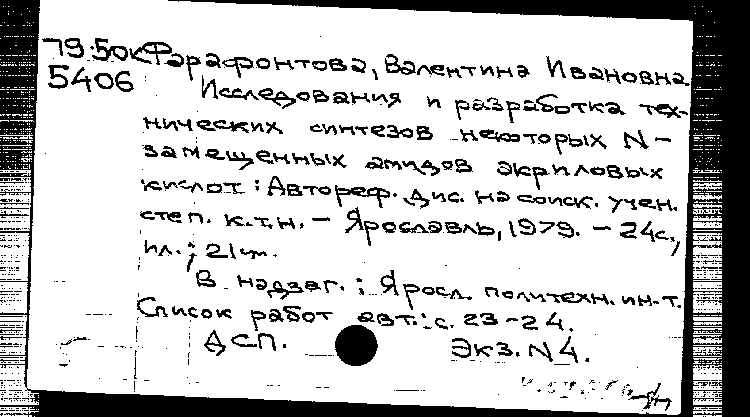 79:50К Фарафонтова, Валентина Ивановна
5406 Исследования и разработка тех-
нических синтезов некоторых N-
замещенных амидов акриловых
кислот : Автореф. дис. на соиск. учен.
степ. к.т.н. - Ярославль, 1979. - 24с.,
ил. ; 21см.
В надзаг. : Яросл. политехн. ин-т.
Список работ авт.: с. 23-24.
ДСП. Экз. N4.